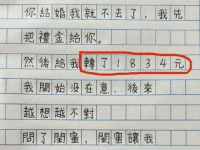 你結婚我就不去了，我先
把禮金給你。
然後給我轉了1834元
我開始沒在意，後來
越想越不對
問了閨蜜，閨蜜讓我